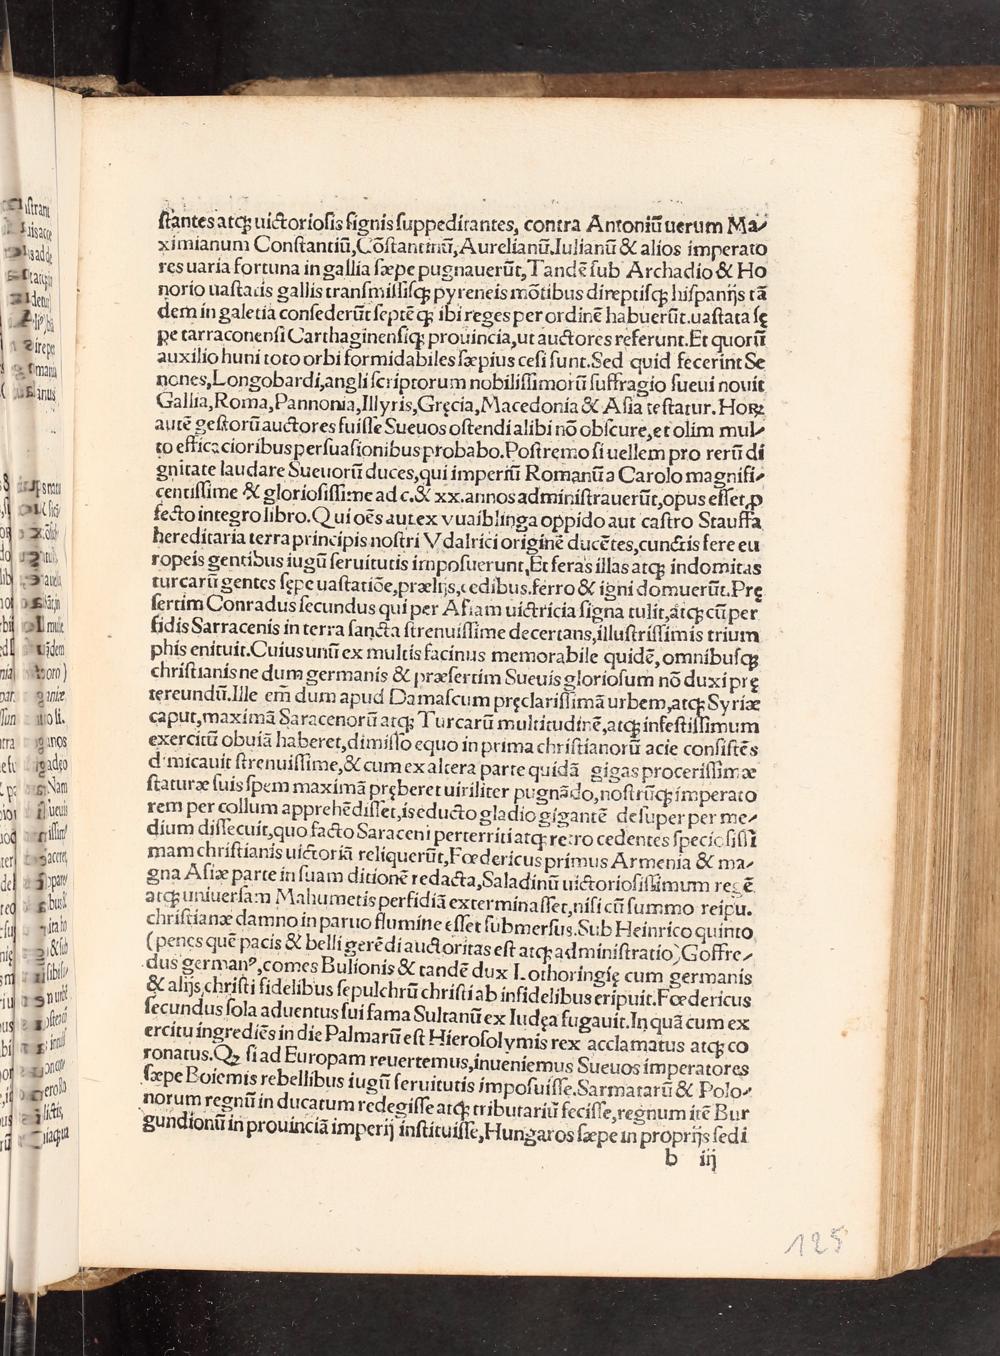 ſtantes atq; uictorioſis ſignis ſuppeditantes, contra Antoniū uerum Ma⸗
ximianum Conſtantiū, Cōſtantinū, Aurelianū. Iulianū & alios imperato
res uaria fortuna in gallia ſæpe pugnauerūt, Tandē ſub Archadio & Ho
norio uaſtatis gallis tranſmiſſiſq; pyreneis mōtibus direptiſq; hiſpanijs tā
dem in galetia conſederūt ſeptē q; ibi reges per ordinē habuerūt. uaſtata ſę
pe tarraconenſi Carthaginenſiq; prouincia, ut auctores referunt. Et quorū
auxilio huni toto orbi formidabiles ſæpius ceſi ſunt. Sed quid fecerint Se
nones, Longobardi, angli ſcriptorum nobiliſſimorū ſuffragio ſueui nouit
Gallia, Roma, Pannonia, Illyris, Gręcia, Macedonia & Aſia teſtatur. Hoꝝ
autē geſtorū auctores fuiſſe Sueuos oſtendi alibi nō obſcure, et olim mul⸗
to efficacioribus perſuaſionibus probabo. Poſtremo ſi uellem pro rerū di
gnitate laudare Sueuorū duces, qui imperiū Romanū a Carolo magnifi⸗
centiſſime & glorioſiſſime ad c. & xx. annos adminiſtrauerūt, opus eſſet, ꝓ
fecto integro libro. Qui oēs aut ex vuaiblinga oppido aut caſtro Stauffa
hereditaria terra principis noſtri Vdalrici originē ducētes, cunctis fere eu
ropeis gentibus iugū ſeruitutis impoſuerunt, Et feras illas atq; indomitas
turcarū gentes ſępe uaſtatiōe, prælijs, cedibus. ferro & igni domuerūt. Prę
ſertim Conradus ſecundus qui per Aſiam uictricia ſigna tulit, atq; cū per
fidis Sarracenis in terra ſancta ſtrenuiſſime decertans, illuſtriſſimis trium
phis enituit. Cuius unū ex multis facinus memorabile quidē, omnibuſq;
chriſtianis ne dum germanis & præſertim Sueuis glorioſum nō duxi prę
tereundū. Ille em̄ dum apud Damaſcum pręclariſſimā urbem, atq; Syriæ
caput, maximā Saracenorū atq; Turcarū multitudinē, atq; infeſtiſſimum
exercitū obuiā haberet, dimiſſo equo in prima chriſtianorū acie conſiſtēs
dimicauit ſtrenuiſſime, & cum ex altera parte quidā gigas proceriſſimæ
ſtaturæ ſuis ſpem maximā pręberet uiriliter pugnādo, noſtrūq; imperato
rem per collum apprehēdiſſet, is educto gladio gigantē deſuper per me⸗
dium diſſecuit, quo facto Saraceni perterriti atq; retro cedentes ſpecioſiſſi
mam chriſtianis uictoriā reliquerūt, Fœdericus primus Armenia & ma⸗
gna Aſiæ parte in ſuam ditionē redacta, Saladinū uictorioſiſſimum regē
atq; uniuerſam Mahumetis perfidiā exterminaſſet, niſi cū ſummo reipu.
chriſtianæ damno in paruo flumine eſſet ſubmerſus. Sub Heinrico quinto
(penes quē pacis & belli gerēdi auctoritas eſt atq; adminiſtratio) Goffre⸗
dus germanꝰ, comes Bulionis & tandē dux Lothoringię cum germanis
& alijs chriſti fidelibus ſepulchrū chriſti ab infidelibus eripuit. Fœdericus
ſecundus ſola aduentus ſui fama Sultanū ex Iudęa fugauit. In quā cum ex
ercitu ingrediēs in die Palmarū eſt Hieroſolymis rex acclamatus atq; co
ronatus. Qꝫ ſi ad Europam reuertemus, inueniemus Sueuos imperatores
ſæpe Boiemis rebellibus iugū ſeruitutis impoſuiſſe. Sarmatarū & Polo⸗
norum regnū in ducatum redegiſſe atq; tributariū feciſſe, regnum itē Bur
gundionū in prouinciā imperij inſtituiſſe, Hungaros ſæpe in proprijs ſedi
b iij
125